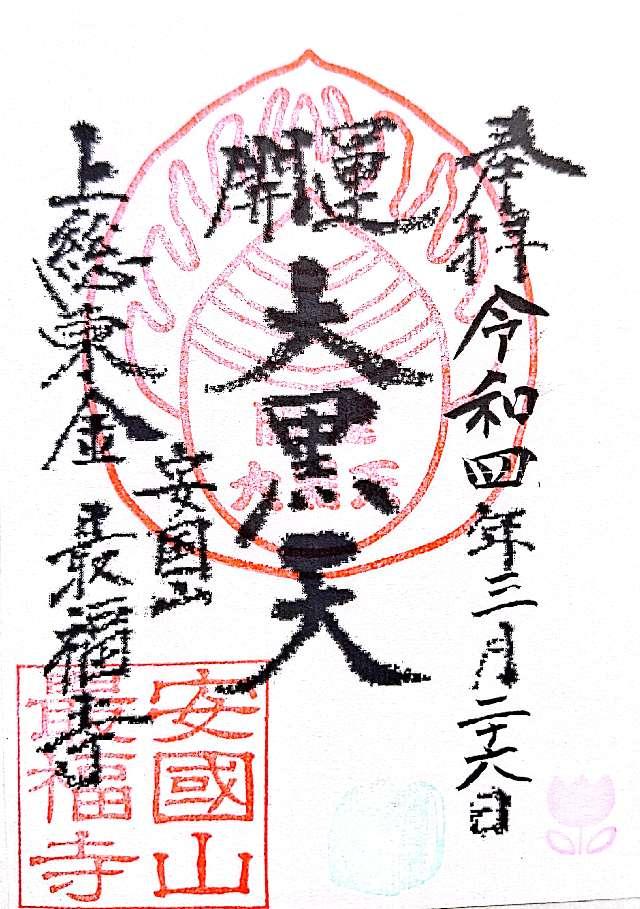 奉拝
令和四年三月二十六日
開運
大黒天
上総東金
安国山
最福寺
開運
大黒天
安國山
最福寺